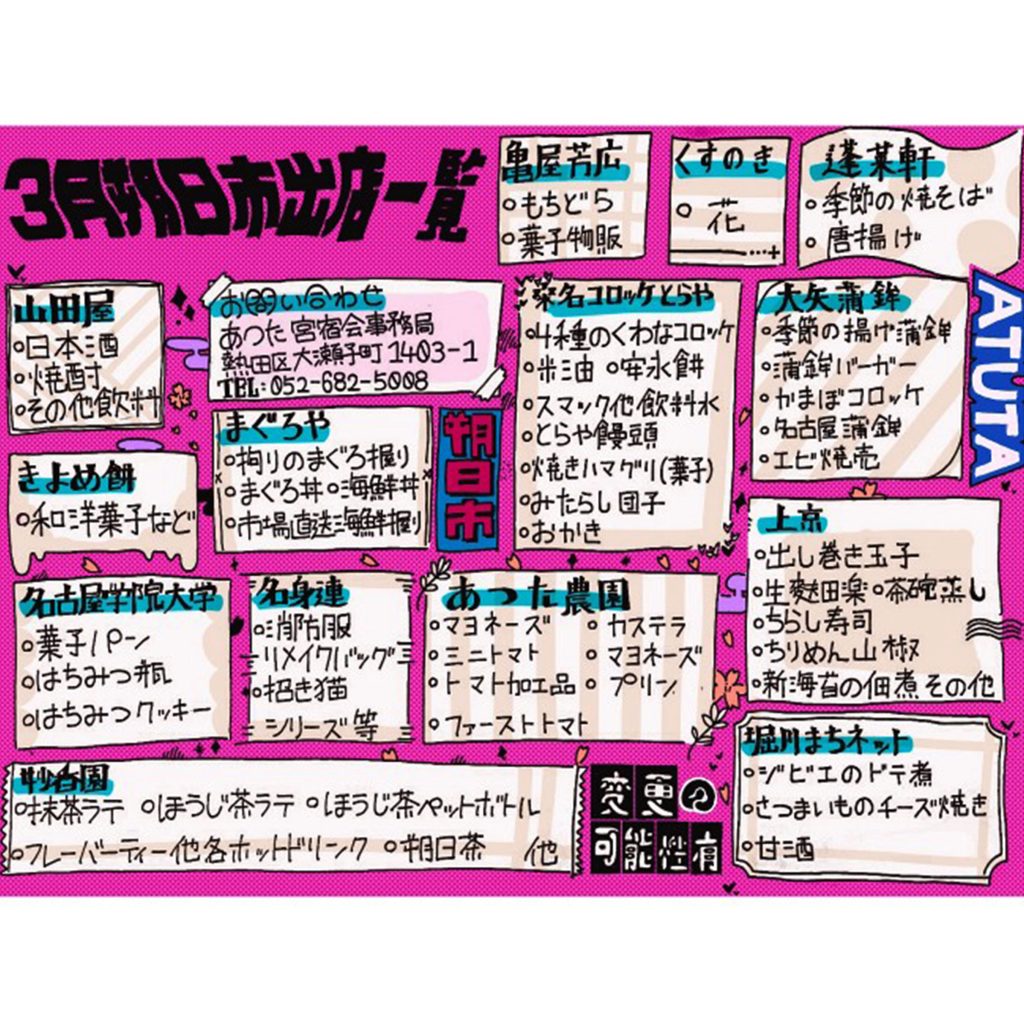 3月朔日市出店一覧
亀屋芳広
○もちどら
○菓子物販
くすのき
○花
蓬莱軒
○季節の焼そば
○唐揚げ
山田屋
○日本酒
○焼酎
○その他飲料
お問い合わせ
あつた宮宿会事務局
熱田区大瀬子町1403-1
TEL:052-682-5008
桑名コロッケとらや
○4種のくわなコロッケ
○米油 ○安永餅
○スマック他飲料水
○とらや饅頭
○焼きハマグリ(菓子)
○みたらし団子
○おかき
大矢蒲鉾
○季節の揚げ蒲鉾
○蒲鉾バーガー
○かまぼコロッケ
○名古屋蒲鉾
○エビ焼売
ATUTA
きよめ餅
○和洋菓子など
まぐろや
○拘りのまぐろ握り
○まぐろ丼 ○海鮮丼
○市場直送海鮮握り
朔日市
上京
○出し巻き玉子
○生麩田楽 ○茶碗蒸し
○ちらし寿司
○ちりめん山椒
○新海苔の佃煮その他
名古屋学院大学
○菓子パン
○はちみつ瓶
○はちみつクッキー
名身連
○消防服
リメイクバッグ
○招き猫
シリーズ等
あつた農園
○マヨネーズ ○カステラ
○ミニトマト ○マヨネーズ
○トマト加工品 ○プリン
○ファーストトマト
妙香園
○抹茶ラテ ○ほうじ茶ラテ ○ほうじ茶ペットボトル
○フレーバーティー他各ホットドリンク ○朔日茶 他
変更の
可能性有
堀川まちネット
○ジビエのドテ煮
○さつまいものチーズ焼き
○甘酒